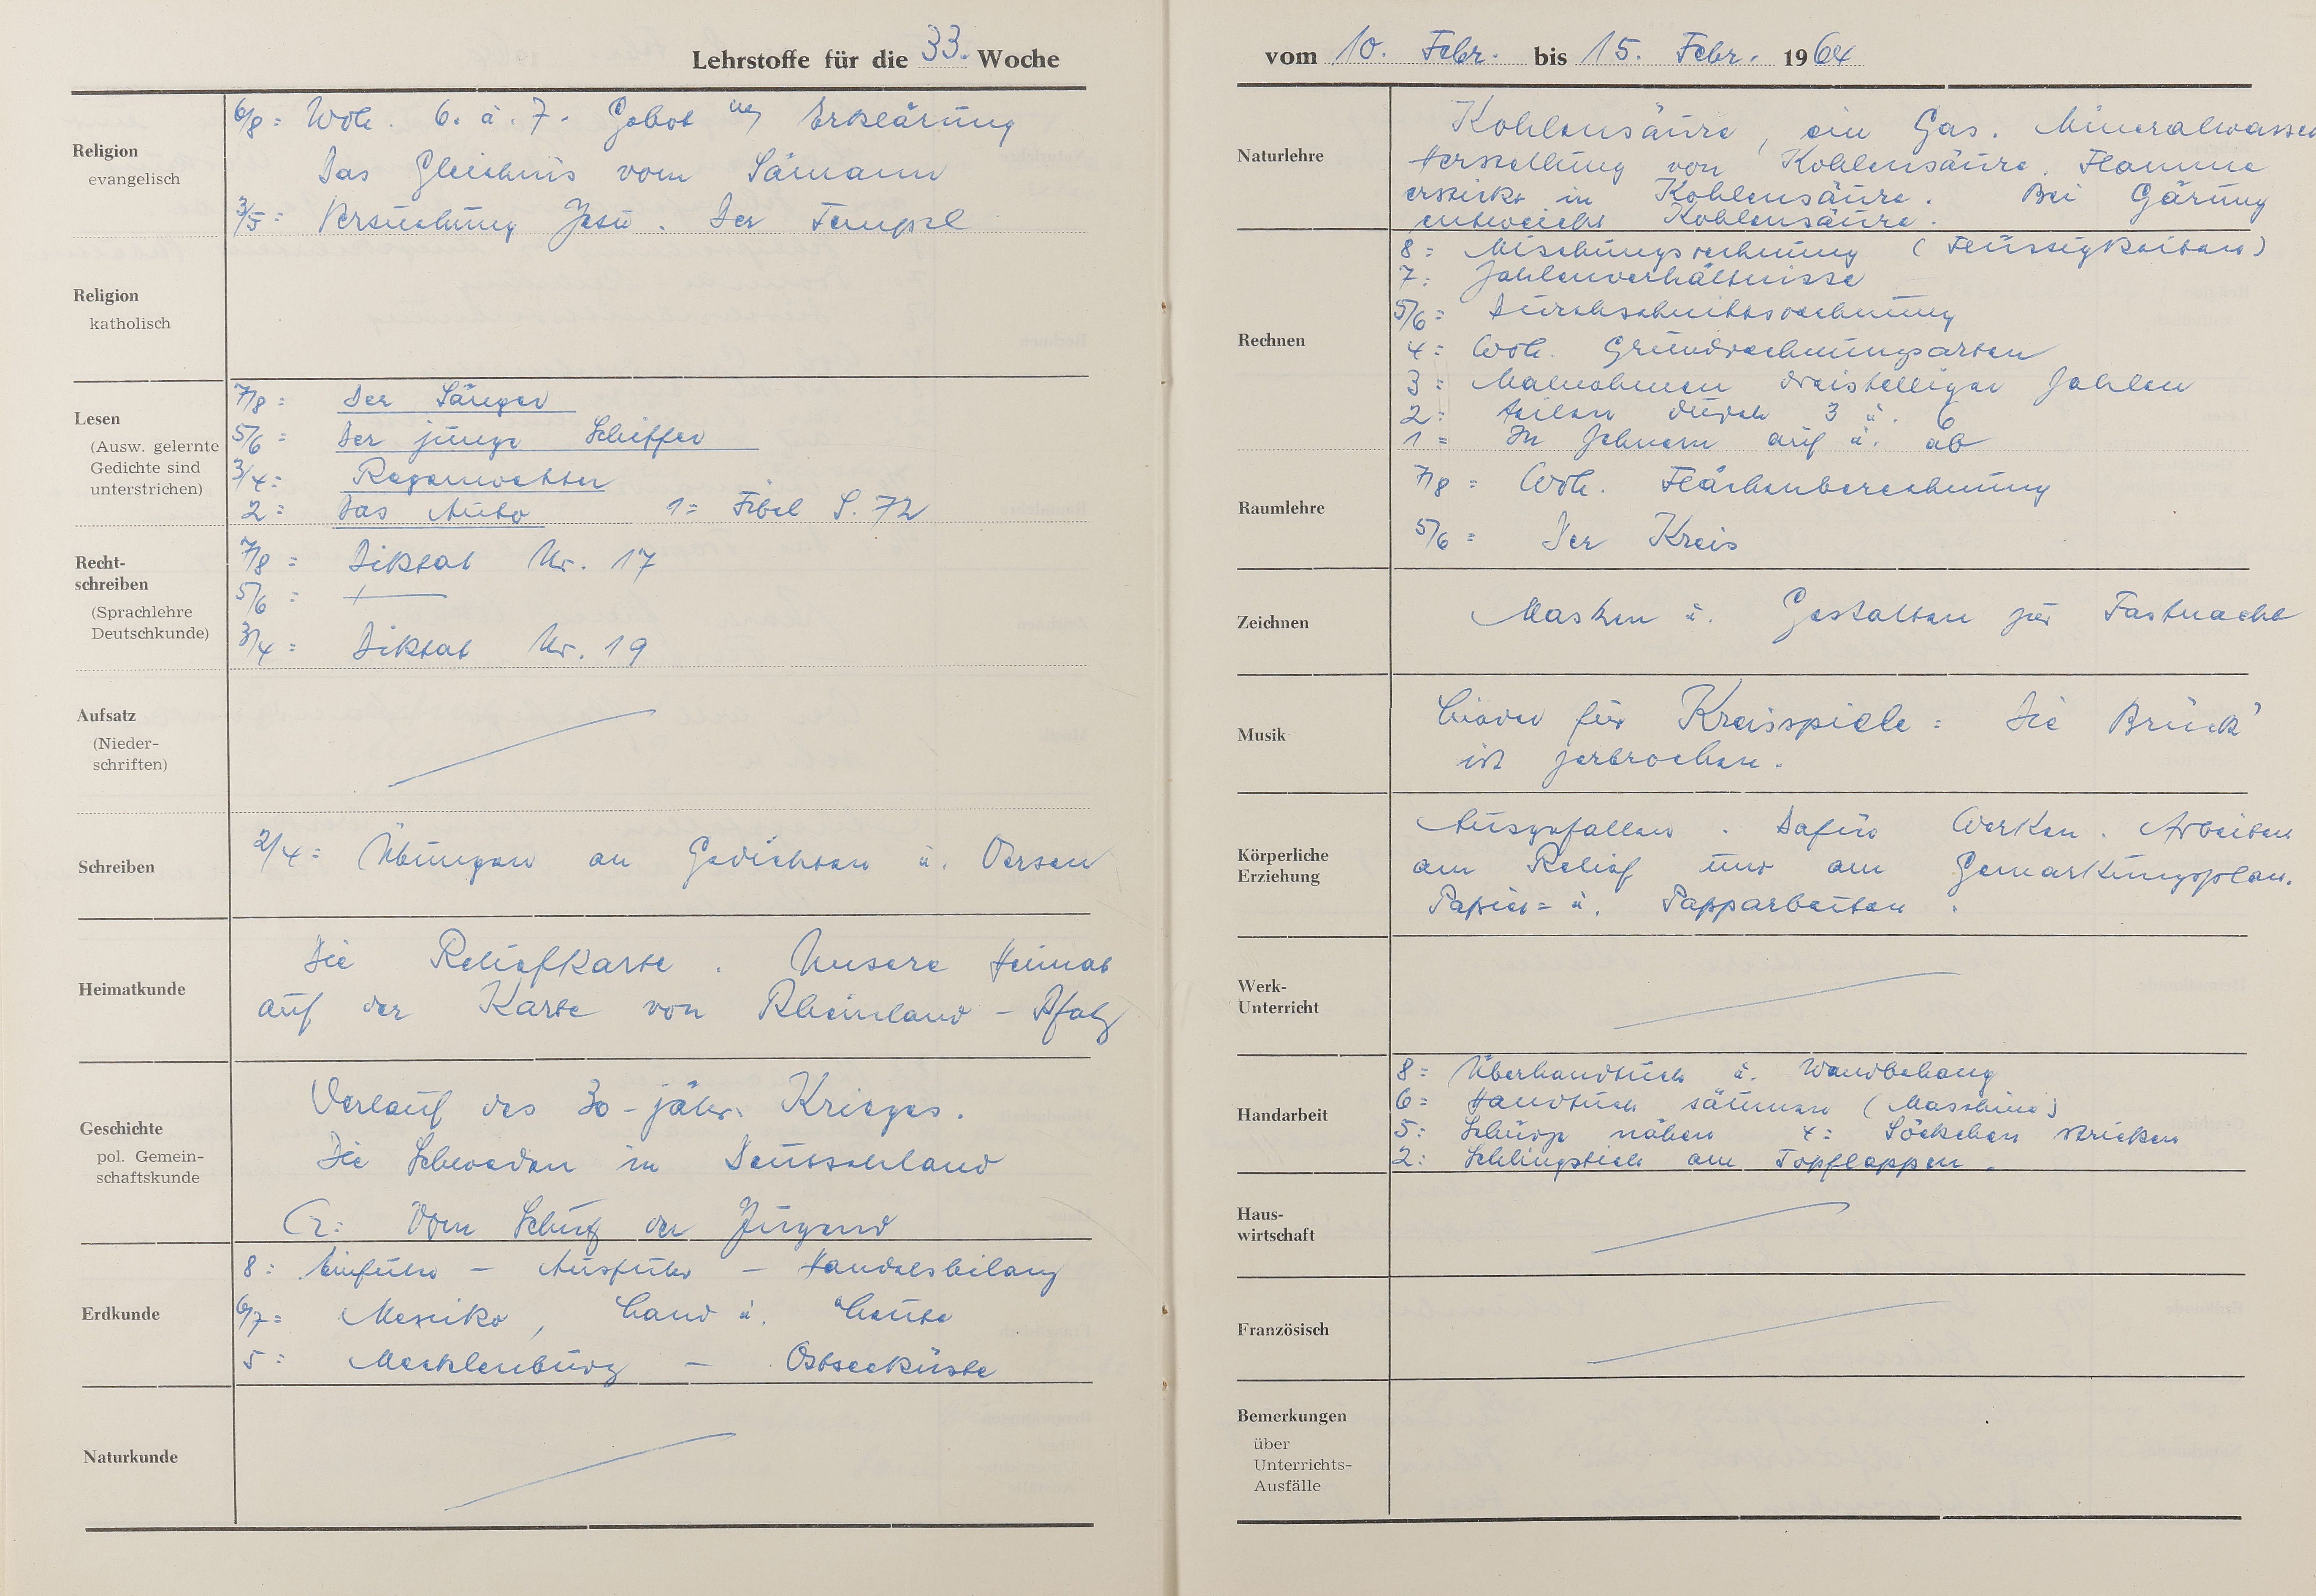 Lehrstoffe für die 33. Woche
Religion
evangelisch
6/8 = Wdh. 6. u. 7. Gebot mit Erklärung
Das Gleichnis vom Sämann
3/5 = Versuchung Jesu. Der Tempel
Religion
katholisch
Lesen
(Ausw. gelernte
Gedichte sind
unterstrichen)
7/8 = Der Sänger
5/6 = Der junge Schiffer
3/4 = Regenwetter
2 = Das Auto 1 = Fibel S. 72
Recht-
schreiben
(Sprachlehre
Deutschkunde)
7/8 = Diktat Nr. 17
5/6 =
3/4 = Diktat Nr. 19
Aufsatz
(Nieder-
schriften)
Schreiben
2/4 = Übungen an Gedichten u. Versen
Heimatkunde
Die Reliefkarte. Unsere Heimat
auf der Karte von Rheinland-Pfalz
Geschichte
pol. Gemein-
schaftskunde
Verlauf des 30-jähr. Krieges.
Die Schweden in Deutschland
G: Vom Schutz der Jugend
Erdkunde
8 = Einfuhr - Ausfuhr - Handelsbilanz
6/7 = Mexiko, Land u. Leute
5 = Mecklenburg - Ostseeküste
Naturkunde
vom 10. Febr. bis 15. Febr. 1964
Naturlehre
Kohlensäure, ein Gas. Mineralwasser
Herstellung von Kohlensäure. Flamme
erstickt in Kohlensäure. Bei Gärung
entweicht Kohlensäure.
Rechnen
8 = Mischungsrechnung (Flüssigkeiten)
7: Zahlenverhältnisse
5/6 = Durchschnittsrechnung
4 = Wdh. Grundrechnungsarten
3 = Malnehmen dreistelliger Zahlen
2 = Teilen durch 3 u. 6
1 = In Zehnern auf u. ab
Raumlehre
7/8 = Wdh. Flächenberechnung
5/6 = Der Kreis
Zeichnen
Masken u. Gestalten zur Fastnacht
Musik
Lieder für Kreisspiele = Die Brück'
ist zerbrochen.
Körperliche
Erziehung
Ausgefallen. Dafür Werken. Arbeiten
am Relief und am Gemarkungsplan.
Papier- u. Papparbeiten.
Werk-
Unterricht
Handarbeit
8 = Überhandtuch u. Wandbehang
6 = Handtuch säumen (Maschine)
5: Schürze nähen 4: Söckchen stricken
2: Schlingstich am Topflappen.
Haus-
wirtschaft
Französisch
Bemerkungen
über
Unterrichts-
Ausfälle